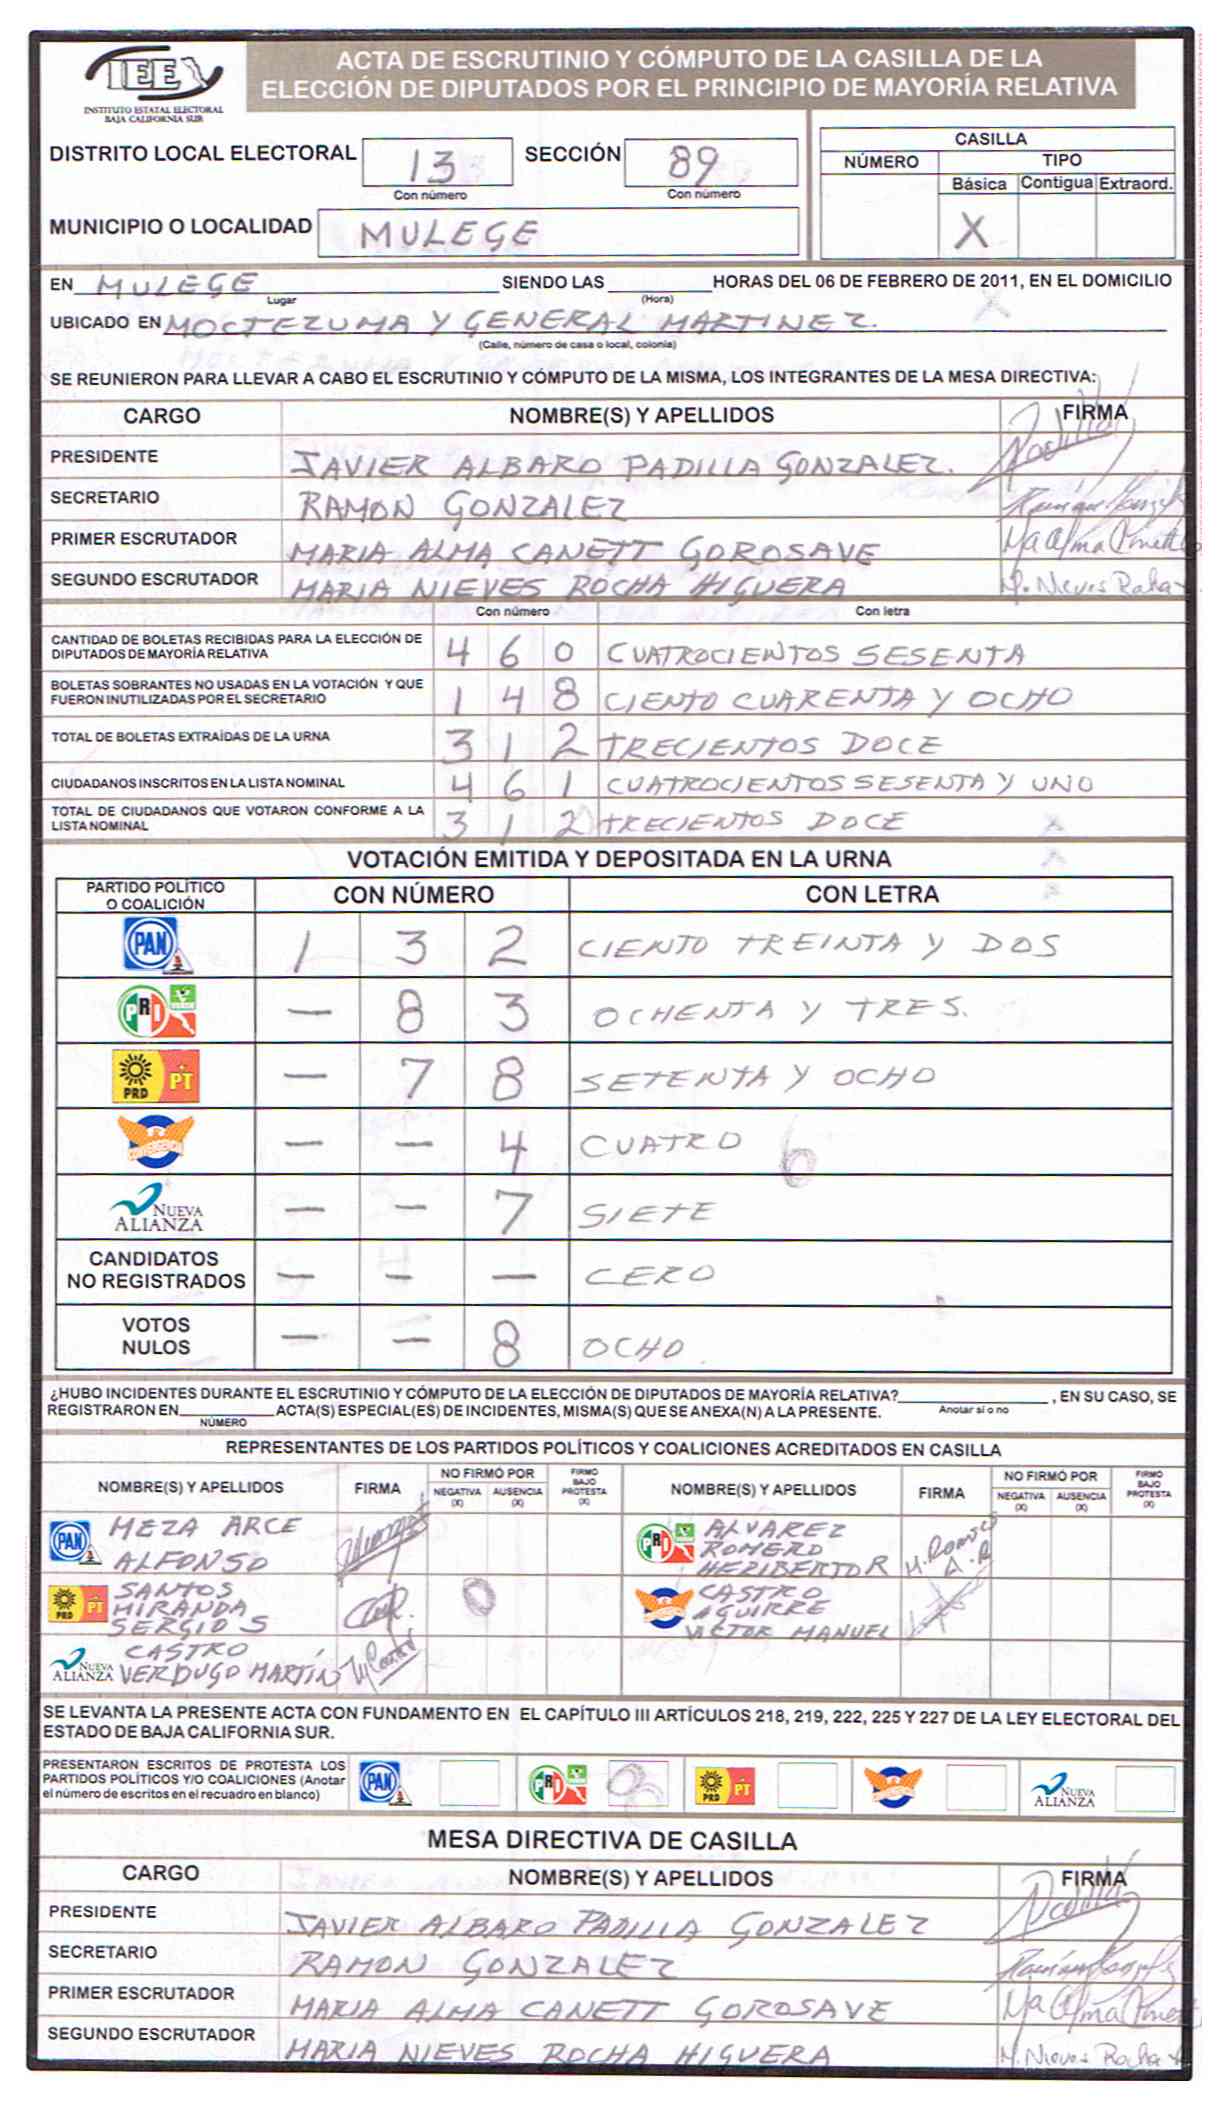 IEE
INSTITUTO ESTATAL ELECTORAL
BAJA CALIFORNIA SUR
ACTA DE ESCRUTINIO Y CÓMPUTO DE LA CASILLA DE LA
ELECCIÓN DE DIPUTADOS POR EL PRINCIPIO DE MAYORÍA RELATIVA
DISTRITO LOCAL ELECTORAL 13 SECCIÓN 89
Con número Con número
CASILLA
NÚMERO TIPO
Básica Contigua Extraord.
X
MUNICIPIO O LOCALIDAD MULEGE
EN MULEGE SIENDO LAS HORAS DEL 06 DE FEBRERO DE 2011, EN EL DOMICILIO
Lugar (Hora)
UBICADO EN MOCTEZUMA Y GENERAL MARTINEZ.
(Calle, número de casa o local, colonia)
SE REUNIERON PARA LLEVAR A CABO EL ESCRUTINIO Y CÓMPUTO DE LA MISMA, LOS INTEGRANTES DE LA MESA DIRECTIVA:
CARGO NOMBRE(S) Y APELLIDOS FIRMA
PRESIDENTE JAVIER ALBARO PADILLA GONZALEZ. Padilla
SECRETARIO RAMON GONZALEZ
PRIMER ESCRUTADOR MARIA ALMA CANETT GOROSAVE Ma Alma Canett
SEGUNDO ESCRUTADOR MARIA NIEVES ROCHA HIGUERA M. Nieves Rocha
Con número Con letra
CANTIDAD DE BOLETAS RECIBIDAS PARA LA ELECCIÓN DE
DIPUTADOS DE MAYORÍA RELATIVA 4 6 0 CUATROCIENTOS SESENTA
BOLETAS SOBRANTES NO USADAS EN LA VOTACIÓN Y QUE
FUERON INUTILIZADAS POR EL SECRETARIO 1 4 8 CIENTO CUARENTA Y OCHO
TOTAL DE BOLETAS EXTRAÍDAS DE LA URNA 3 1 2 TRECIENTOS DOCE
CIUDADANOS INSCRITOS EN LA LISTA NOMINAL 4 6 1 CUATROCIENTOS SESENTA Y UNO
TOTAL DE CIUDADANOS QUE VOTARON CONFORME A LA
LISTA NOMINAL 3 1 2 TRECIENTOS DOCE
VOTACIÓN EMITIDA Y DEPOSITADA EN LA URNA
PARTIDO POLÍTICO
O COALICIÓN CON NÚMERO CON LETRA
PAN 1 3 2 CIENTO TREINTA Y DOS
PRI — 8 3 OCHENTA Y TRES.
PRD PT — 7 8 SETENTA Y OCHO
CONVERGENCIA — — 4 CUATRO 6
NUEVA ALIANZA — — 7 SIETE
CANDIDATOS
NO REGISTRADOS — — — CERO
VOTOS
NULOS — — 8 OCHO.
¿HUBO INCIDENTES DURANTE EL ESCRUTINIO Y CÓMPUTO DE LA ELECCIÓN DE DIPUTADOS DE MAYORÍA RELATIVA? , EN SU CASO, SE
Anotar sí o no
REGISTRARON EN ACTA(S) ESPECIAL(ES) DE INCIDENTES, MISMA(S) QUE SE ANEXA(N) A LA PRESENTE.
NÚMERO
REPRESENTANTES DE LOS PARTIDOS POLÍTICOS Y COALICIONES ACREDITADOS EN CASILLA
NOMBRE(S) Y APELLIDOS FIRMA NO FIRMÓ POR NEGATIVA (X) AUSENCIA (X) FIRMÓ BAJO PROTESTA (X) NOMBRE(S) Y APELLIDOS FIRMA NO FIRMÓ POR NEGATIVA (X) AUSENCIA (X) FIRMÓ BAJO PROTESTA (X)
PAN MEZA ARCE
ALFONSO
PRI ALVAREZ
ROMERO
HERIBERTO R H. Romero A. R
PRD PT SANTOS
MIRANDA
SERGIO S
CASTRO
AGUIRRE
VICTOR MANUEL
CASTRO
NUEVA ALIANZA VERDUGO MARTÍN
SE LEVANTA LA PRESENTE ACTA CON FUNDAMENTO EN EL CAPÍTULO III ARTÍCULOS 218, 219, 222, 225 Y 227 DE LA LEY ELECTORAL DEL
ESTADO DE BAJA CALIFORNIA SUR.
PRESENTARON ESCRITOS DE PROTESTA LOS
PARTIDOS POLÍTICOS Y/O COALICIONES (Anotar
el número de escritos en el recuadro en blanco)
PAN PRI PRD PT NUEVA ALIANZA
MESA DIRECTIVA DE CASILLA
CARGO NOMBRE(S) Y APELLIDOS FIRMA
PRESIDENTE JAVIER ALBARO PADILLA GONZALEZ Padilla
SECRETARIO RAMON GONZALEZ
PRIMER ESCRUTADOR MARIA ALMA CANETT GOROSAVE Ma Alma Canett
SEGUNDO ESCRUTADOR MARIA NIEVES ROCHA HIGUERA M. Nieves Rocha